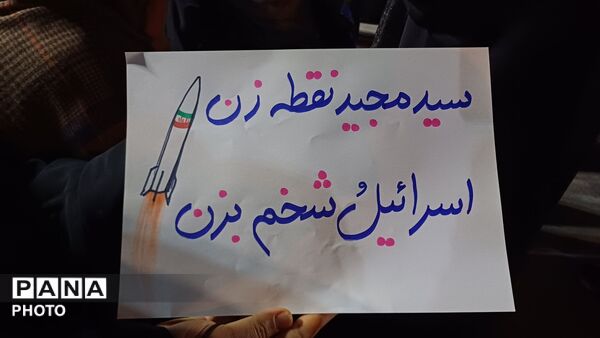 سیدمجید نقطه زن
اسرائیلُ شخم بزن
PANA
PHOTO